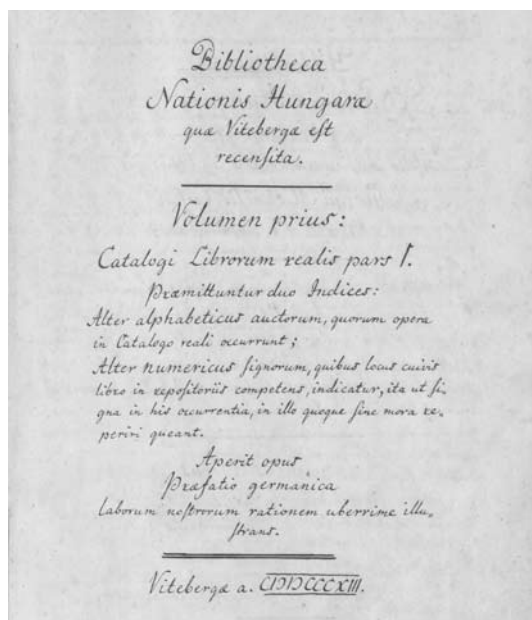 Bibliotheca
Nationis Hungaræ
quæ Vitebergæ eſt
recenſita.
Volumen prius:
Catalogi Librorum realis pars I.
Præmittuntur duo Indices:
Alter alphabeticus auctorum, quorum opera
in Catalogo reali occurrunt;
Alter numericus ſignorum, quibus locus cuivis
libro in repoſitoriis competens, indicatur, ita ut ſi-
gna in his occurrentia, in illo quoque ſine mora re-
periri queant.
Aperit opus
Præfatio germanica
laborum noſtrorum rationem uberrime illu-
ſtrans.
Vitebergæ a.